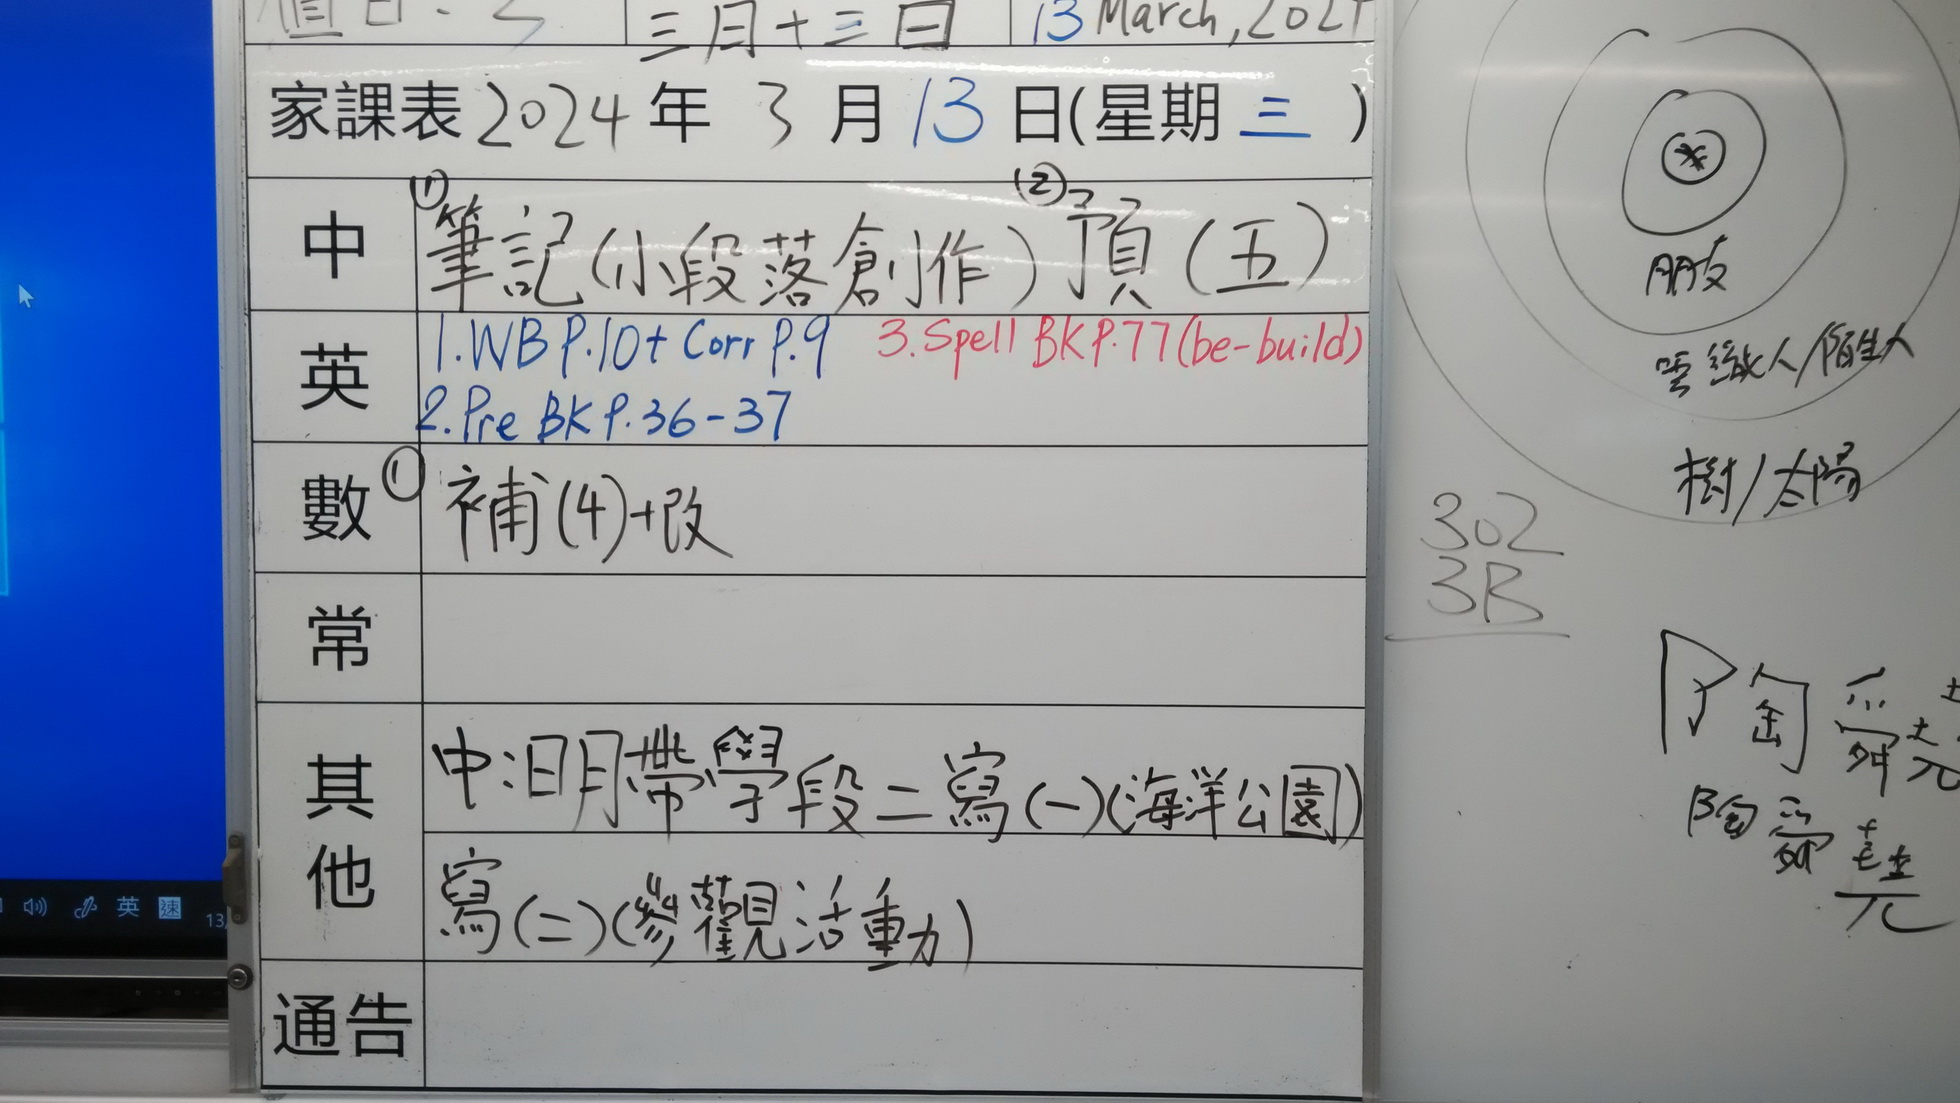 值日: 3 三月十三日 13 March, 202
家課表 2024 年 3 月 13 日(星期 三 )
中 (1) 筆記(小段落創作) (2) 預(五)
英 1. WB P.10 + Corr P.9 3. Spell BK P.77 (be-build)
2. Pre BK P. 36-37
數 ① 補(4)+改
常
其他 中:明帶學段二寫(一)(海洋公園)
寫(二)(參觀活動)
通告
朋友
人/陌生人
樹/太陽
302
3B
英 速
13